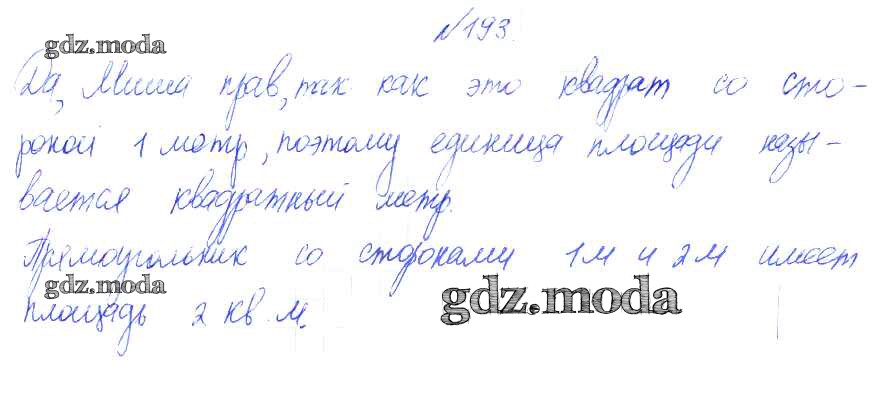 №193.
gdz.moda
Да, Миша прав, так как это квадрат со сто-
роной 1 метр, поэтому единица площади назы-
вается квадратный метр.
Прямоугольник со сторонами 1м и 2м имеет
gdz.moda
gdz.moda
площадь 2 кв.м.